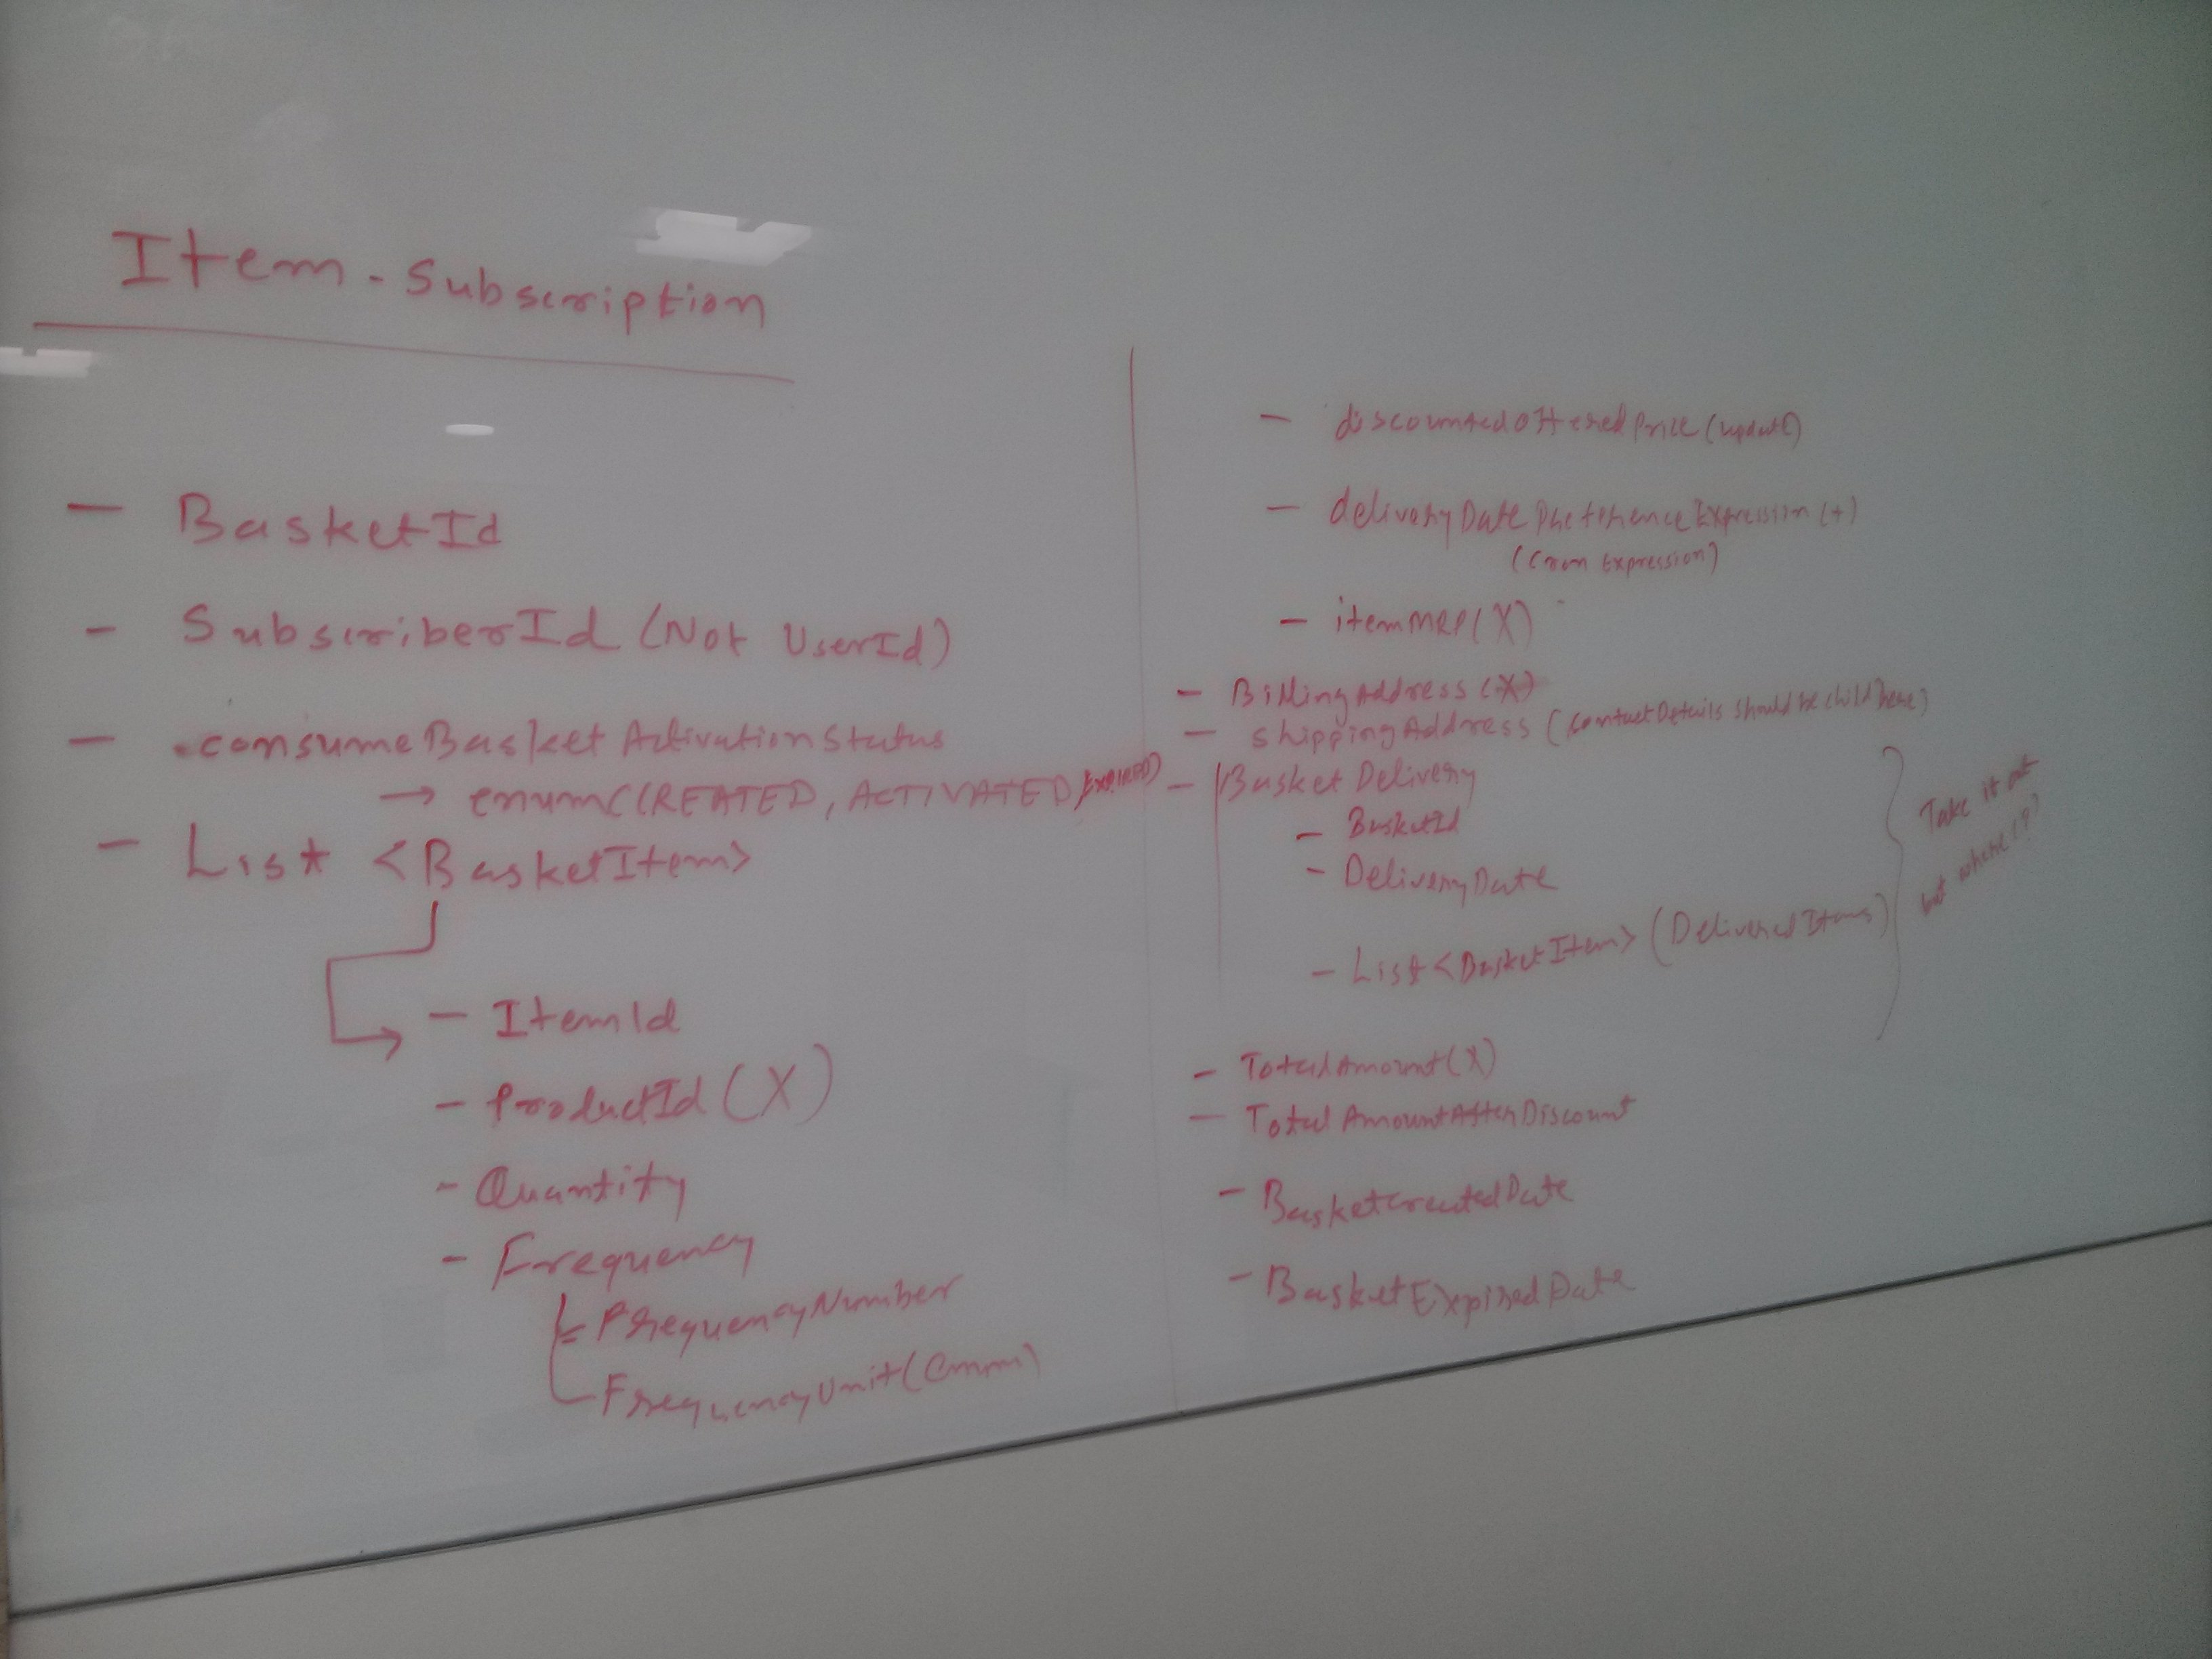 Item - Subscription
- BasketId
- SubscriberId (Not UserId)
- consumeBasketActivationStatus
→ enum(CREATED, ACTIVATED, EXPIRED)
- List <BasketItem>
- ItemId
- ProductId (X)
- Quantity
- Frequency
- FrequencyNumber
- FrequencyUnit (enum)
- discountedOfferedPrice (update)
- deliveryDatePreferenceExpression (+)
(Cron Expression)
- itemMRP (X)
- BillingAddress (X)
- shippingAddress (contactDetails should be child here)
- Basket Delivery
- BasketId
- DeliveryDate
- List <BasketItem> (DeliveredItems)
Take it out
but where (?)
- TotalAmount (X)
- TotalAmountAfterDiscount
- BasketCreatedDate
- BasketExpiredDate